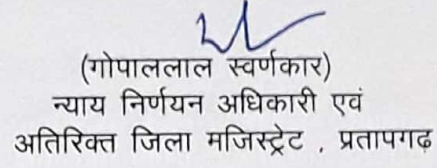 (गोपाललाल स्वर्णकार)
न्याय निर्णयन अधिकारी एवं
अतिरिक्त जिला मजिस्ट्रेट , प्रतापगढ़